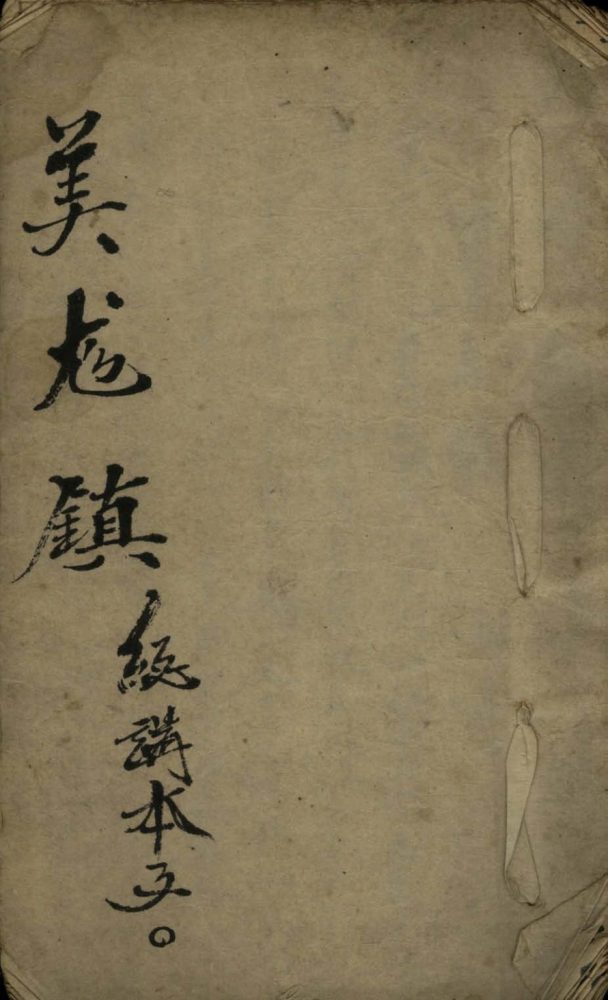 美龙鎮
總講本子。